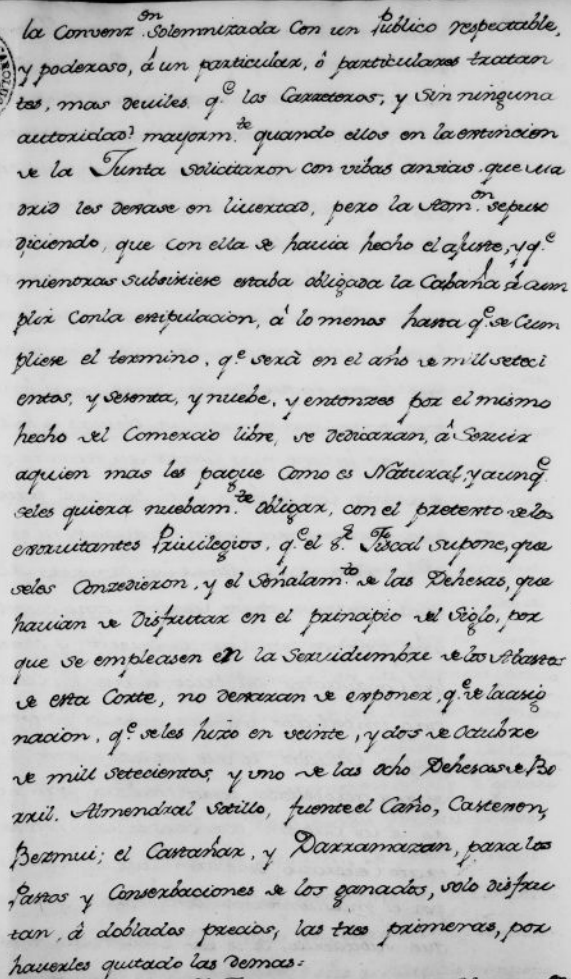 la Convenz.on Solemnizada Con un Publico respectable,
y poderoso, á un particular, ó particulares tratan
tes, mas deviles q.e los Carreteros, y Sin ninguna
autoridad? mayorm.te quando ellos en la extincion
de la Junta solicitaron con vibas ansias que Ma
drid les dexase en livertad, pero la Adm.on sepuso
diciendo, que con ella se havia hecho el ajuste, y q.e
mientras subsistiese estaba obligada la Cabaña á cum
plir Conla estipulacion, á lo menos hasta q.e se Cum
pliese el termino, q.e será en el año de mill seteci
entos, y sesenta, y nuebe, y entonzes por el mismo
hecho del Comercio libre, se dedicaran, á Servir
aquien mas les pague Como es Natural, y aunq.e
seles quiera nuebam.te obligar, con el pretexto de los
exorvitantes Privilegios, q.e el S.r Fiscal supone, que
seles Conzedieron, y el Señalam.to de las Dehesas, que
havian de Disfrutar en el principio del Siglo, por
que se empleasen en la Servidumbre de los Abastos
de esta Corte, no dexaran de exponer, q.e de la asig
nacion, q.e seles hizo en veinte, y dos de Octubre
de mill setecientos, y uno de las ocho Dehesas de Bo
rril. Almendral Sotillo, fuente el Caño, Casteron,
Bermui; el Castañar, y Darramazan, para los
Pastos y Conserbaciones de los ganados, solo disfru
tan, á doblados precios, las tres primeras, por
haverles quitado las demas: